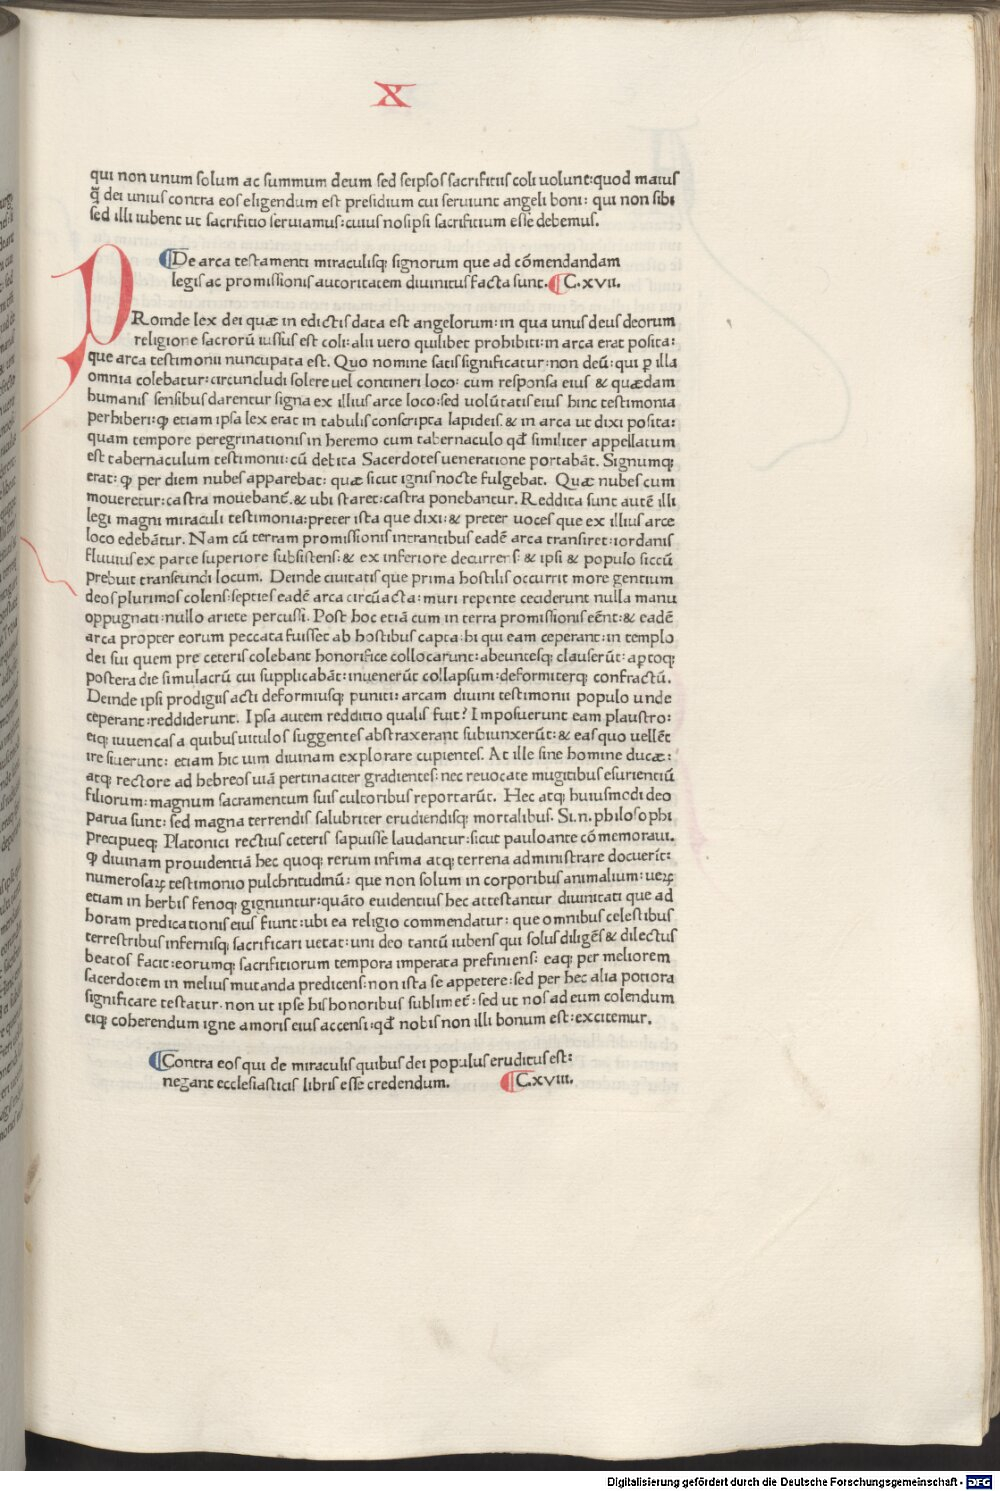 X
qui non unum solum ac summum deum sed seipsos sacrificiis coli uolunt:quod maius
q̃ dei unius contra eos eligendum est presidium cui seruiunt angeli boni: qui non sibi
sed illi iubent ut sacrificio seruiamus:cuius nosipsi sacrificium esse debemus.
De arca testamenti miraculisq; signorum que ad cõmendandam
legis ac promissionis autoritatem diuinitus facta sunt. C.xvii.
PRoinde lex dei quæ in edictis data est angelorum:in qua unus deus deorum
religione sacrorũ iussus est coli:alii uero quilibet prohibiti:in arca erat posita:
que arca testimonii nuncupata est. Quo nomine satis significatur:non deũ: qui ꝑ illa
omnia colebatur:circuncludi solere uel contineri loco: cum responsa eius & quædam
humanis sensibus darentur signa ex illius arce loco:sed uolũtatis eius hinc testimonia
perhiberi:ꝙ etiam ipsa lex erat in tabulis conscripta lapideis.& in arca ut dixi posita:
quam tempore peregrinationis in heremo cum tabernaculo qđ similiter appellatum
est tabernaculum testimonii:cũ debita Sacerdotes ueneratione portabãt. Signumq;
erat: ꝙ per diem nubes apparebat: quæ sicut ignis nocte fulgebat. Quæ nubes cum
moueretur:castra mouebant̃.& ubi staret:castra ponebantur. Reddita sunt autẽ illi
legi magni miraculi testimonia:preter ista que dixi:& preter uoces que ex illius arce
loco edebãtur. Nam cũ terram promissionis intrantibus eadẽ arca transiret:iordanis
fluuius ex parte superiore subsistens:& ex inferiore decurrens: & ipsi & populo siccũ
prebuit transeundi locum. Deinde ciuitatis que prima hostilis occurrit more gentium
deos plurimos colens:septies eadẽ arca circũacta: muri repente ceciderunt nulla manu
oppugnati:nullo ariete percussi. Post hoc etiã cum in terra promissionis eẽnt:& eadẽ
arca propter eorum peccata fuisset ab hostibus capta:hi qui eam ceperant:in templo
dei sui quem pre ceteris colebant honorifice collocarunt:abeuntesq; clauserũt: aptoq;
postera die simulacrũ cui supplicabãt:inuenerũt collapsum:deformiterq; confractũ.
Deinde ipsi prodigiis acti deformiusq; puniti: arcam diuini testimonii populo unde
ceperant:reddiderunt. Ipsa autem redditio qualis fuit? Imposuerunt eam plaustro:
eiq; iuuencas a quibus uitulos suggentes abstraxerant subiunxerũt:& eas quo uellẽt
ire siuerunt: etiam hic uim diuinam explorare cupientes. At ille sine homine ducæ:
atq; rectore ad hebreos uiã pertinaciter gradientes: nec reuocate mugitibus esurientiũ
filiorum: magnum sacramentum suis cultoribus reportarũt. Hec atq; huiusmodi deo
parua sunt: sed magna terrendis salubriter erudiendisq; mortalibus. Si.n.philosophi
precipueq; Platonici rectius ceteris sapuisse laudantur:sicut pauloante cõmemoraui.
ꝙ diuinam prouidentiã hec quoq; rerum infima atq; terrena administrare docuerĩt:
numerosaꝝ testimonio pulchritudinũ: que non solum in corporibus animalium: ueꝝ
etiam in herbis fenoq; gignuntur:quãto euidentius hec attestantur diuinitati que ad
horam predicationis eius fiunt:ubi ea religio commendatur: que omnibus celestibus
terrestribus infernisq; sacrificari uetat:uni deo tantũ iubens qui solus diligẽs & dilectus
beatos facit:eorumq; sacrificiorum tempora imperata prefiniens: eaq; per meliorem
sacerdotem in melius mutanda predicens:non ista se appetere:sed per hec alia potiora
significare testatur.non ut ipse his honoribus sublimet̃: sed ut nos ad eum colendum
eiq; coherendum igne amoris eius accensi:qđ nobis non illi bonum est:excitemur.
Contra eos qui de miraculis quibus dei populus eruditus est:
negant ecclesiasticis libris esse credendum. C.xviii.
Digitalisierung gefördert durch die Deutsche Forschungsgemeinschaft - DFG